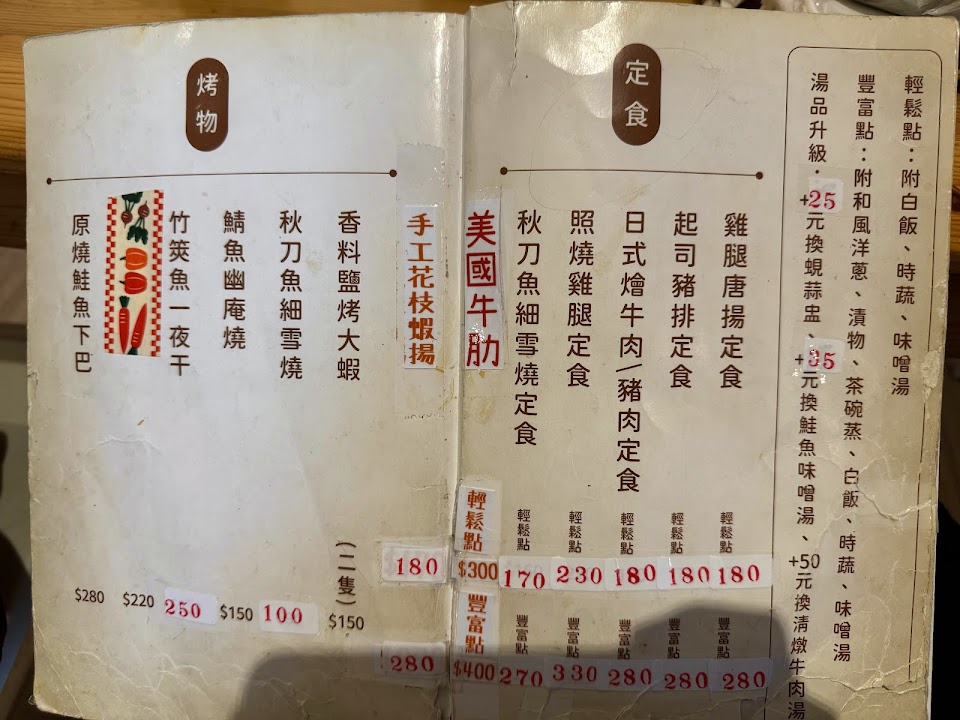 輕鬆點：附白飯、時蔬、味噌湯
豐富點：附和風洋蔥、漬物、茶碗蒸、白飯、時蔬、味噌湯
湯品升級：+25元換蜆蒜盅、+35元換鮭魚味噌湯、+50元換清燉牛肉湯
定食
雞腿唐揚定食 輕鬆點 180 豐富點 280
起司豬排定食 輕鬆點 180 豐富點 280
日式燴牛肉/豬肉定食 輕鬆點 180 豐富點 280
照燒雞腿定食 輕鬆點 230 豐富點 330
秋刀魚細雪燒定食 輕鬆點 170 豐富點 270
美國牛肋 輕鬆點 $300 豐富點 $400
手工花枝蝦揚 180 280
烤物
香料鹽烤大蝦 (二隻) $150
秋刀魚細雪燒 100
鯖魚幽庵燒 $150
竹筴魚一夜干 250
$220
原燒鮭魚下巴 $280